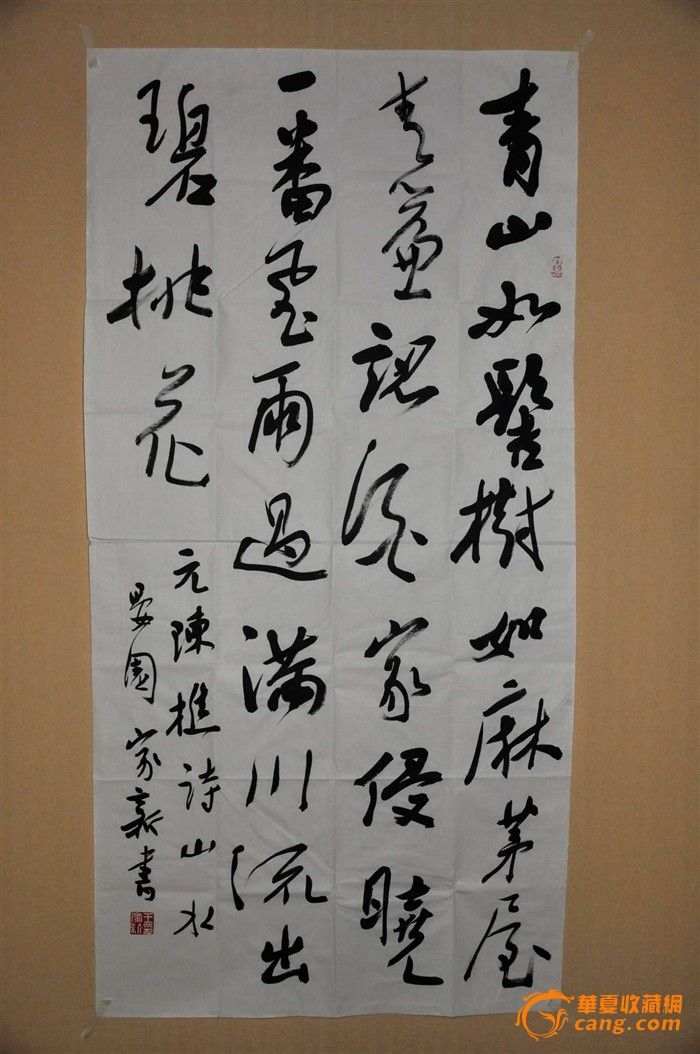 青山如髻樹如麻茅屋
青簾認酒家侵曉
一番雨過滿川流出
碧桃花
元陳樵詩山水
晏園家新書
華夏收藏網
cang.com